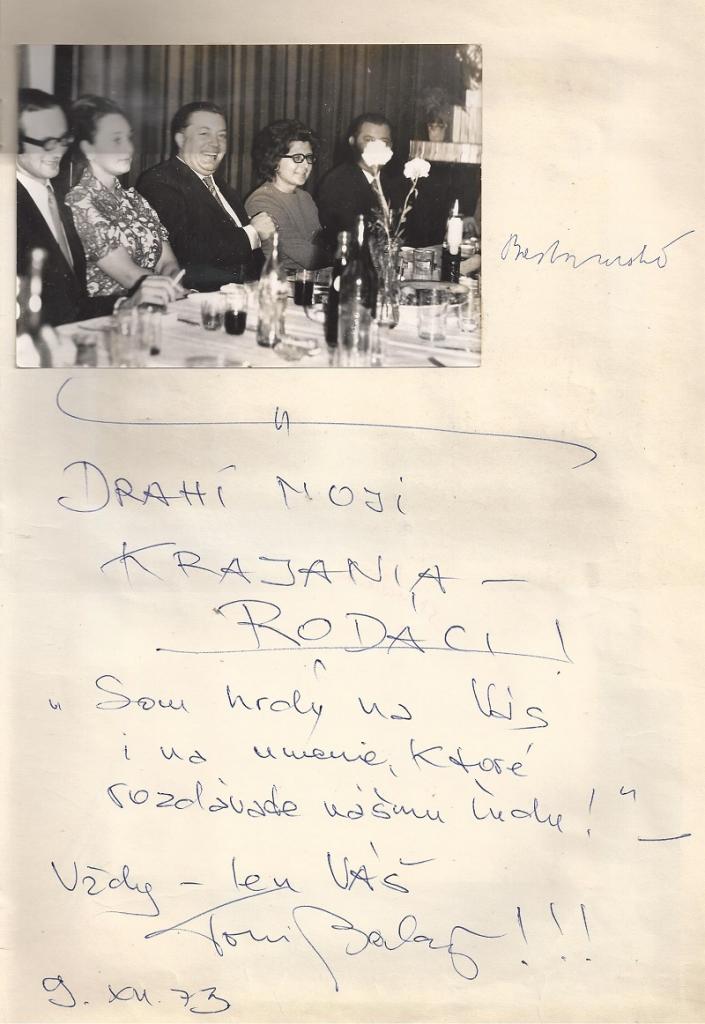 DRAHÍ MOJI
KRAJANIA –
RODÁCI!
„Som hrdý na Vás
i na umenie, ktoré
rozdávate nášmu ľudu!" –
Vždy – len VÁŠ
Toni Balaž!!!
9. XII. 73